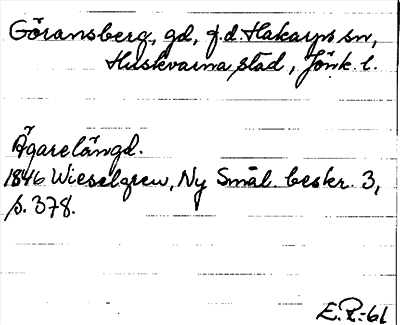 Göransberg, gd, f.d. Hakarps sn,
Huskvarna stad, Jönk. l.
Ägarelängd.
1846 Wieselgren, Ny Smål. beskr. 3,
s. 378.
E.R.-61